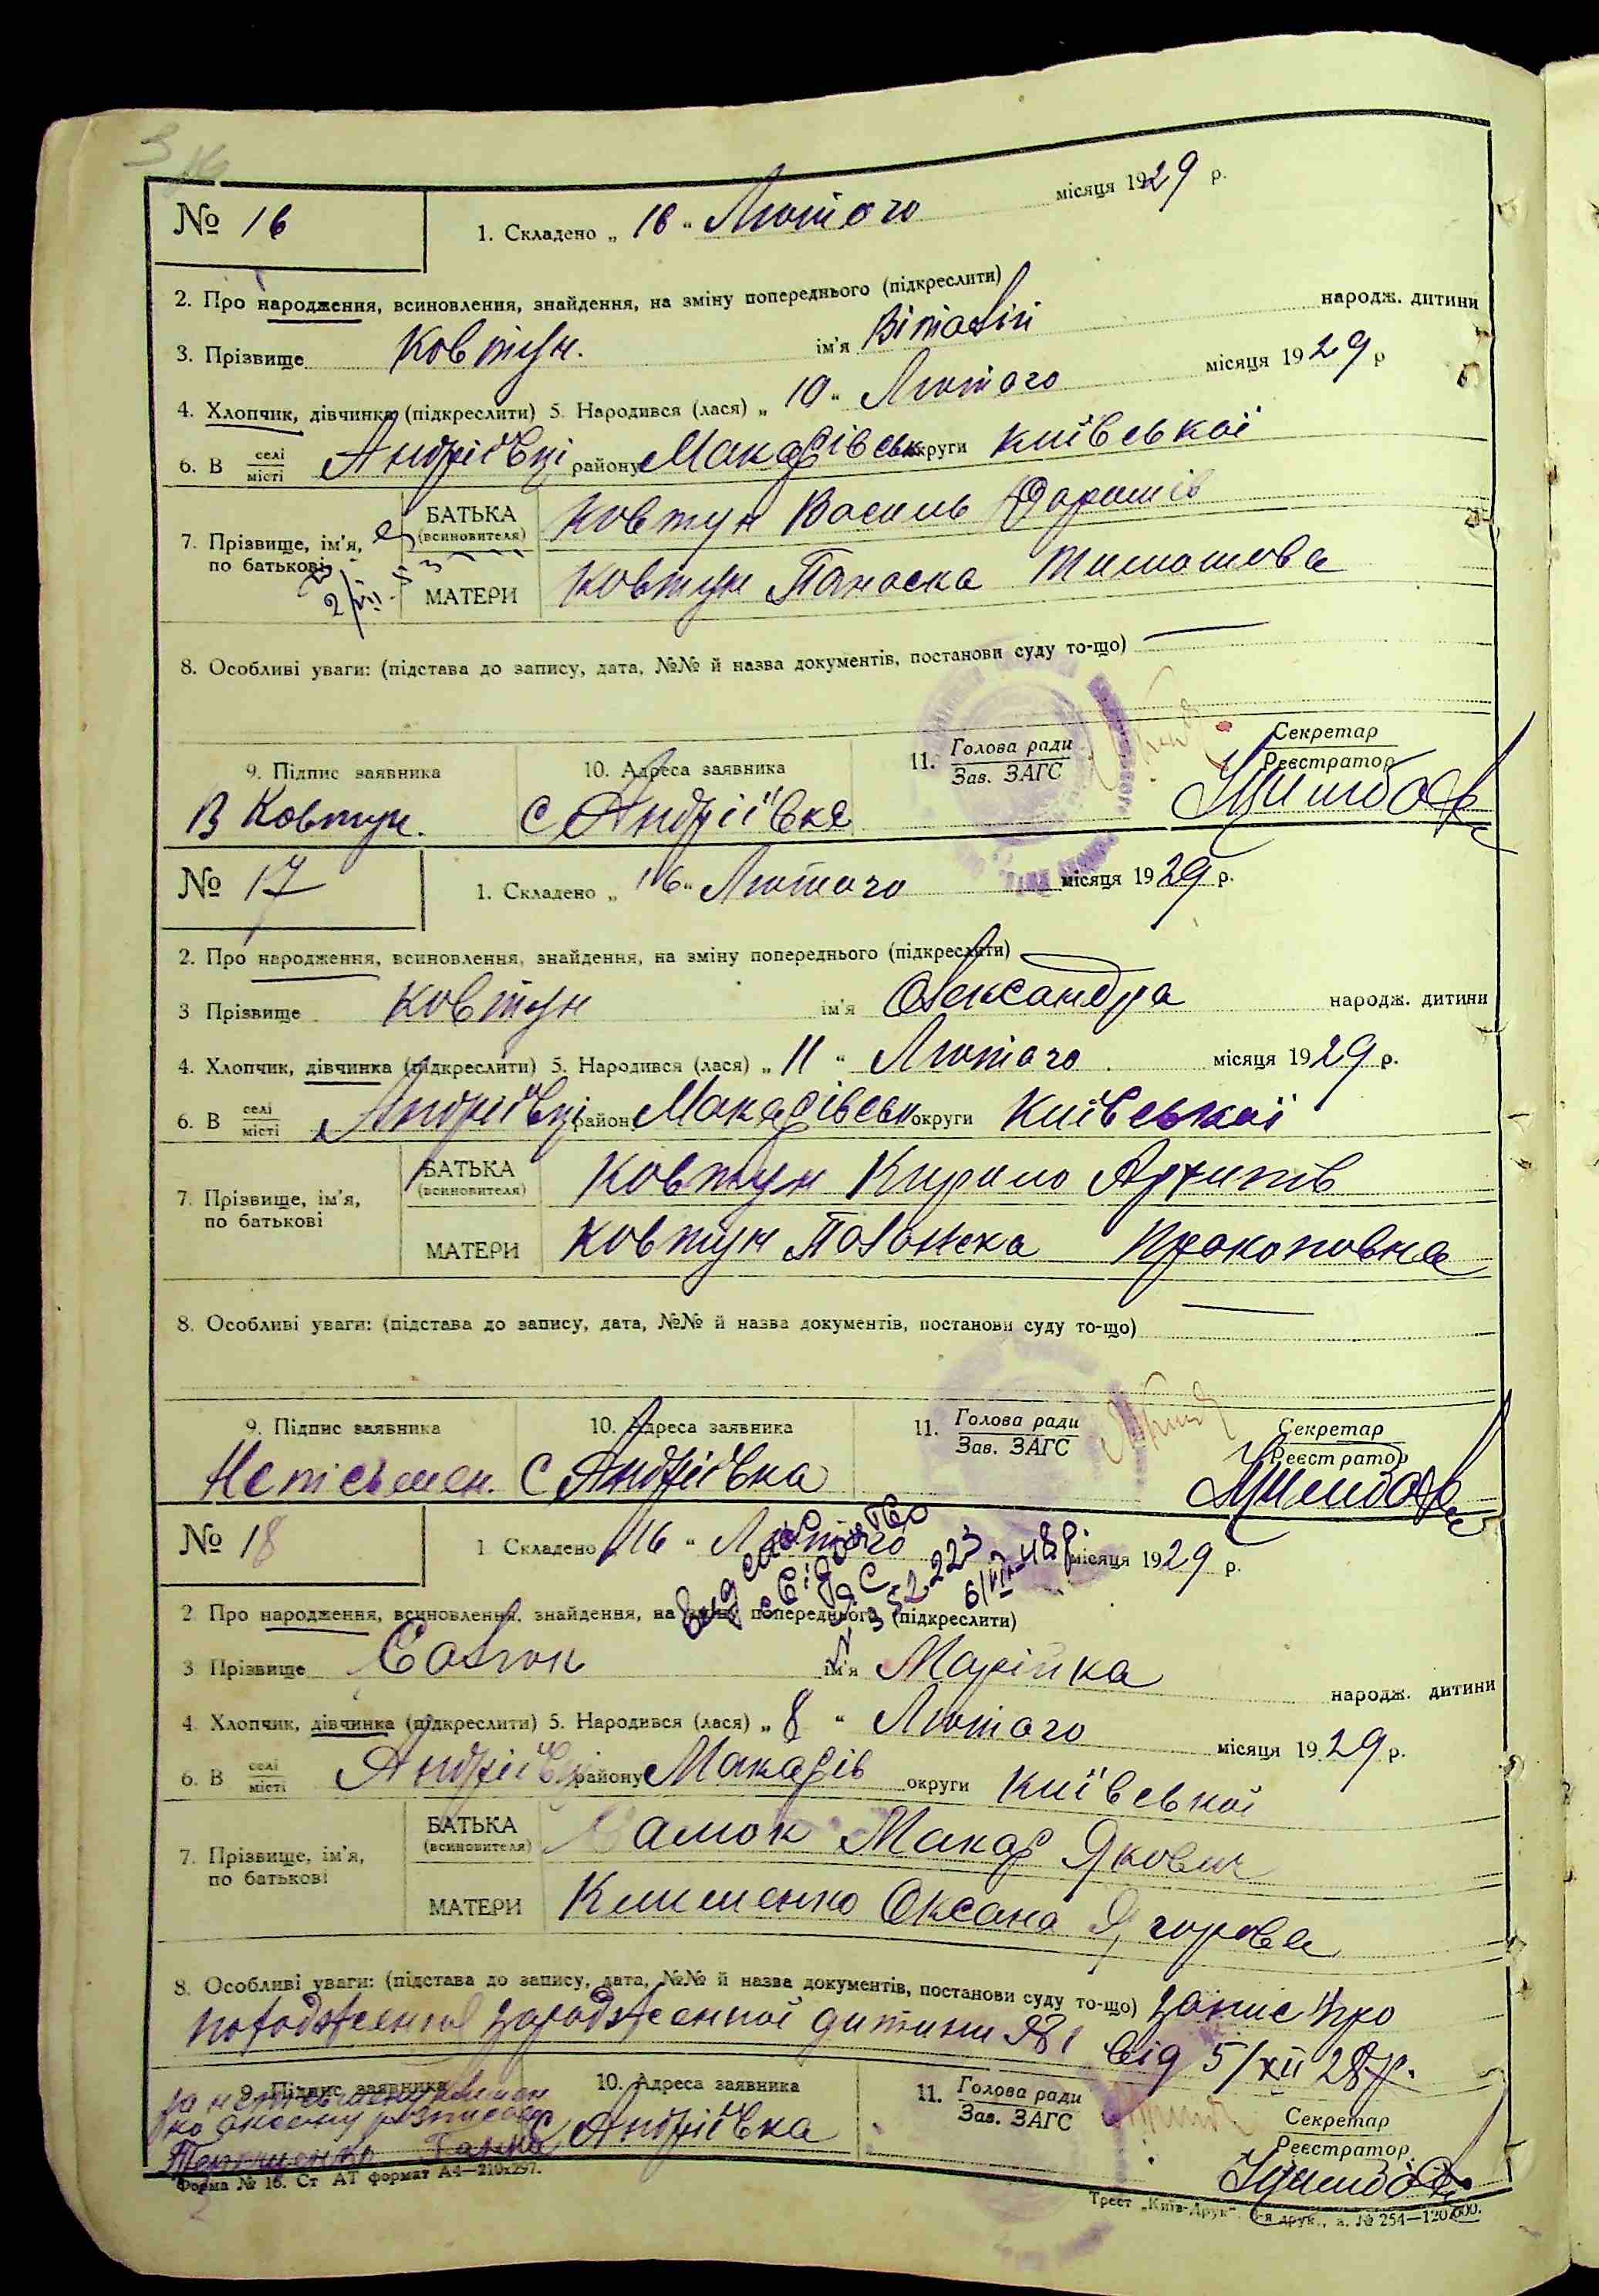 № 16
1. Складено „ 16 “ Лютого місяця 1929 р.
2. Про народження, всиновлення, знайдення, на зміну попереднього (підкреслити)
3. Прізвище Ковтун. ім'я Віталій народж. дитини
4. Хлопчик, дівчинка (підкреслити) 5. Народився (лася) „ 10 “ Лютого місяця 1929 р
6. В селі місті Андріївці району Макарівськ округи Київської
7. Прізвище, ім'я, по батькові
БАТЬКА (всиновителя) Ковтун Василь
МАТЕРИ Ковтун Панаска Тимошова
8. Особливі уваги: (підстава до запису, дата, №№ й назва документів, постанови суду то-що)
9. Підпис заявника 10. Адреса заявника 11. Голова ради Зав. ЗАГС Секретар Реєстратор
В Ковтун. С Андріївка
№ 17
1. Складено „ 16 “ Лютого місяця 1929 р.
2. Про народження, всиновлення, знайдення, на зміну попереднього (підкреслити)
3 Прізвище Ковтун ім'я Олександра народж. дитини
4. Хлопчик, дівчинка (підкреслити) 5. Народився (лася) „ 11 “ Лютого місяця 1929 р.
6. В селі місті Андріївці район Макарівськ округи Київської
7. Прізвище, ім'я, по батькові
БАТЬКА (всиновителя) Ковтун Кирило Архипів
МАТЕРИ Ковтун Палажка Прокоповна
8. Особливі уваги: (підстава до запису, дата, №№ й назва документів, постанови суду то-що)
9. Підпис заявника 10. Адреса заявника 11. Голова ради Зав. ЗАГС Секретар Реєстратор
Неписьмен. С Андріївка
№ 18
1 Складено „ 16 “ Лютого місяця 1929 р.
видано свідоцтво
2 Про народження, всиновлення, знайдення, на зміну попереднього (підкреслити)
3 Прізвище ім'я Марійка народж. дитини
4. Хлопчик, дівчинка (підкреслити) 5. Народився (лася) „ 8 “ Лютого місяця 1929 р.
6. В селі місті Андріївці району Макарів округи Київської
7. Прізвище, ім'я, по батькові
БАТЬКА (всиновителя) Макар Якович
МАТЕРИ Клименко Оксана Ягорова
8. Особливі уваги: (підстава до запису, дата, №№ й назва документів, постанови суду то-що) запис про
дитини № 1 від 5/XII 28 р.
9. Підпис заявника 10. Адреса заявника 11. Голова ради Зав. ЗАГС Секретар Реєстратор
С Андріївка
Форма № 16. Ст АТ формат А4—210х297.
Трест „Київ-Друк“.